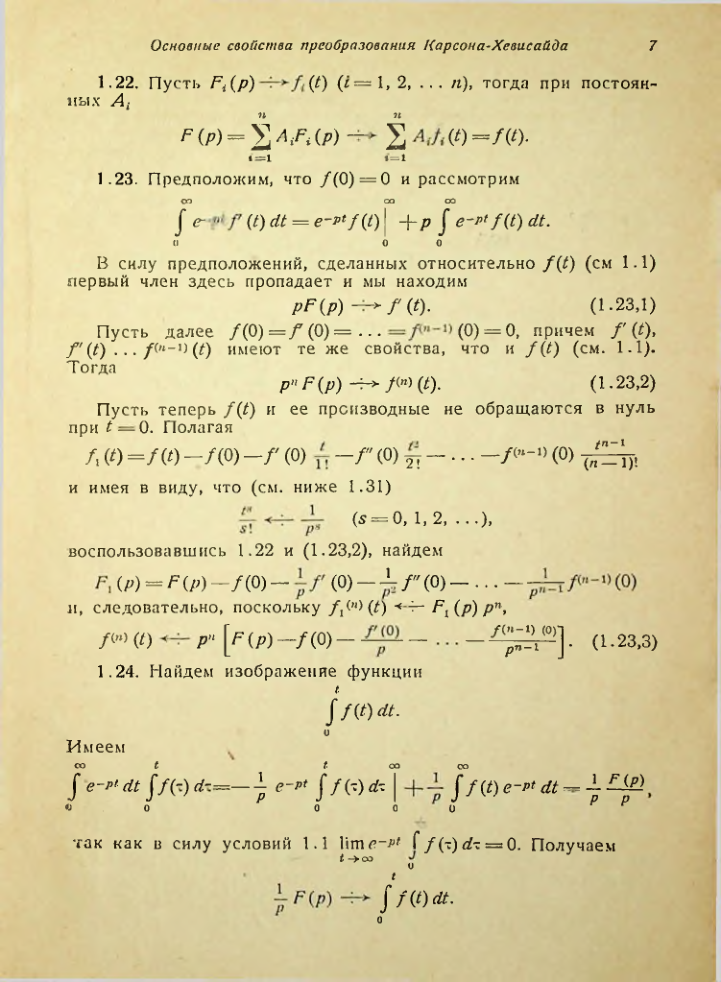 Основные свойства преобразования Карсона-Хевисайда 7
1.22. Пусть Fᵢ(p) ÷→ fᵢ(t) (i = 1, 2, ... n), тогда при постоян-
ных Aᵢ
F(p) = ∑ᵢ₌₁ⁿ AᵢFᵢ(p) ÷→ ∑ᵢ₌₁ⁿ Aᵢfᵢ(t) = f(t).
1.23. Предположим, что f(0) = 0 и рассмотрим
∫₀^∞ e^{-pt} f′(t) dt = e^{-pt} f(t) |₀^∞ + p ∫₀^∞ e^{-pt} f(t) dt.
В силу предположений, сделанных относительно f(t) (см 1.1)
первый член здесь пропадает и мы находим
pF(p) ÷→ f′(t). (1.23,1)
Пусть далее f(0) = f′(0) = ... = f^{(n-1)}(0) = 0, причем f′(t),
f″(t) ... f^{(n-1)}(t) имеют те же свойства, что и f(t) (см. 1.1).
Тогда
pⁿ F(p) ÷→ f^{(n)}(t). (1.23,2)
Пусть теперь f(t) и ее производные не обращаются в нуль
при t = 0. Полагая
f₁(t) = f(t) − f(0) − f′(0) t/1! − f″(0) t²/2! − ... − f^{(n-1)}(0) t^{n-1}/(n − 1)!
и имея в виду, что (см. ниже 1.31)
t^s/s! ←÷ 1/p^s (s = 0, 1, 2, ...),
воспользовавшись 1.22 и (1.23,2), найдем
F₁(p) = F(p) − f(0) − 1/p f′(0) − 1/p² f″(0) − ... − 1/p^{n-1} f^{(n-1)}(0)
и, следовательно, поскольку f₁^{(n)}(t) ←÷ F₁(p) pⁿ,
f^{(n)}(t) ←÷ pⁿ [F(p) − f(0) − f′(0)/p − ... − f^{(n-1)}(0)/p^{n-1}]. (1.23,3)
1.24. Найдем изображение функции
∫₀^t f(t) dt.
Имеем
∫₀^∞ e^{-pt} dt ∫₀^t f(τ) dτ = − 1/p e^{-pt} ∫₀^t f(τ) dτ |₀^∞ + 1/p ∫₀^∞ f(t) e^{-pt} dt = 1/p F(p)/p,
так как в силу условий 1.1 lim_{t→∞} e^{-pt} ∫₀ f(τ) dτ = 0. Получаем
1/p F(p) ÷→ ∫₀^t f(t) dt.